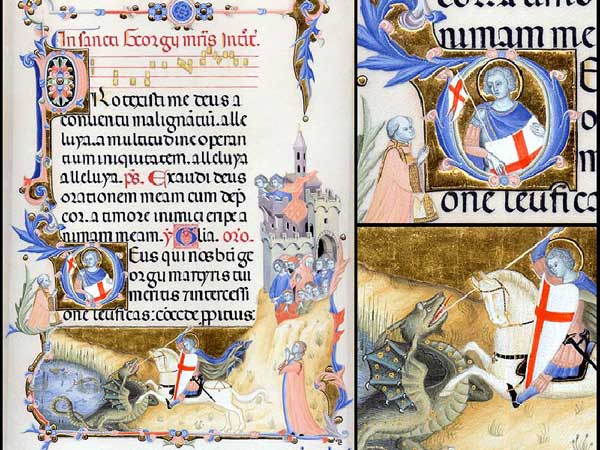 In sancti Georgy mr̄is Intr̄.
PRotexisti me deus a
conuentu malignātiū. alle
luya. a multitudine operan
tium iniquitatem. alleluya
alleluya. ps. Exaudi deus
orationem meam cum dep̄
cor. a timore inimici eripe a
nimam meam. Glia. oro.
DEus qui nos bt̄i ge
orgy martyris tui
meritis 7 intercessi
one letificas: cōcede ppitius
cor a timo
nimam me
one letifica